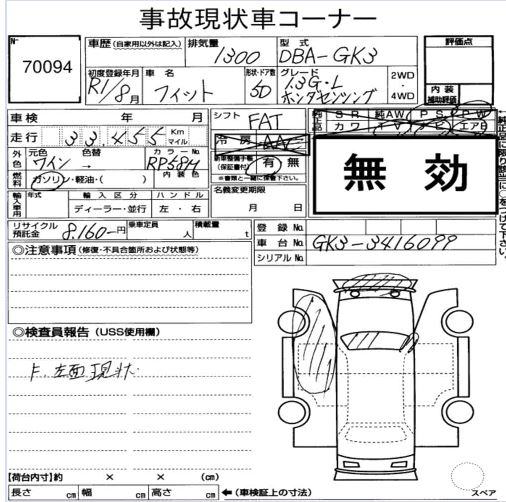 事故現状車コーナー
No 70094
車歴 (自家用以外は記入) 排気量 1300 型式 DBA-GK3
評価点
初度登録年月 R1/8月 車名 フィット 形状・ドア数 5D グレード 1.3G・L ホンダセンシング 2WD ・ 4WD
内装補助評価
車検 年 月
シフト FAT
純 SR 純AW PS PW
革 カワ TV ナビ エアB
走行 33455 Km マイル
冷房 AAC
新車整備手帳 (保証書付) 有 無
※書類と一緒に保管下さい。
無効
外色 元色 ワイン 色替 → カラーNo. RP58H
内装色
燃料 ガソリン・軽油・( )
名義変更期限
月 日
輸入車用 年式 輸入区分 ハンドル
ディーラー・並行 左・右
リサイクル預託金 8,160-円 乗車定員 人 積載量 t
登録No.
車台No. GK3-3416099
シリアルNo.
◎注意事項 (修復・不具合箇所および状態等)
◎検査員報告 (USS使用欄)
F.左面現状
【荷台内寸】約 × × (cm)
長さ cm 幅 cm 高さ cm ←(車検証上の寸法)
スペア